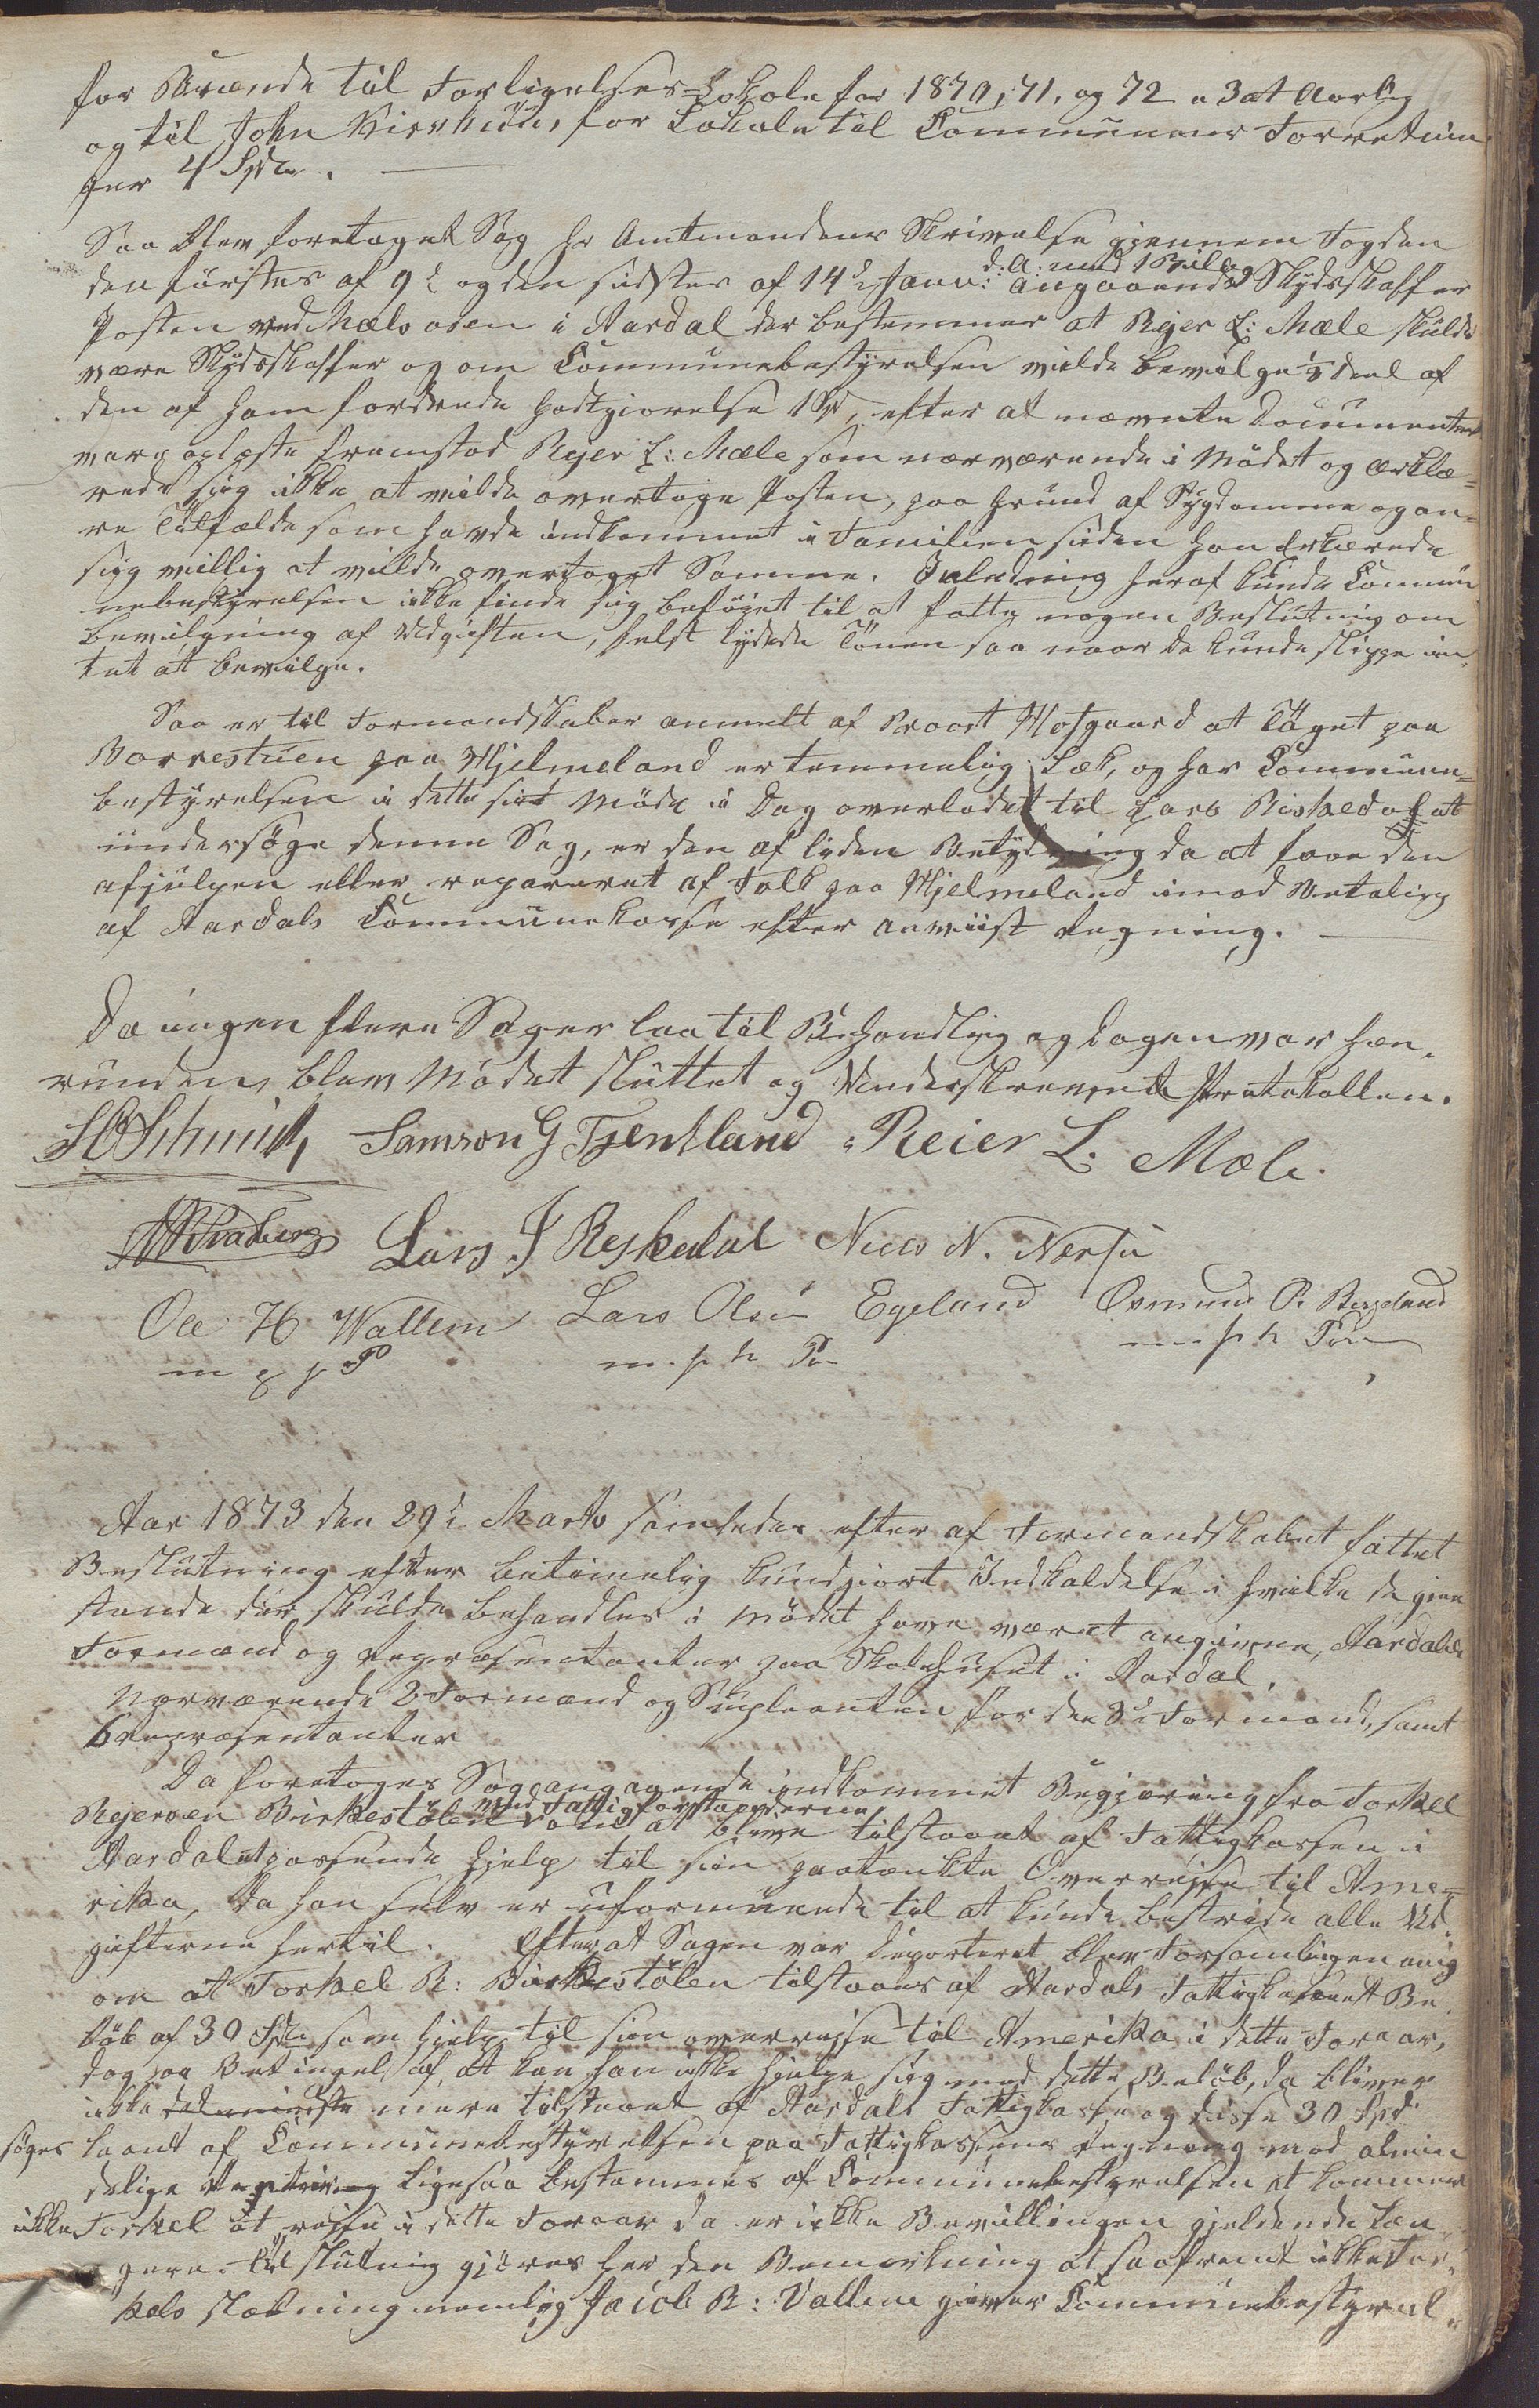 for Brænde til Forligelses-Lokale for 1870, 71, og 72 a 3 at Aarlig
og til John Kirkhuus for Lokale til Communens Forretnin
ger 4 Spd.
Saa blev foretaget Sag Hr Amtmandens Skrivelse gjennem Fogden
d: A: med 1 Bilag
den førstes af 9de og den sidstes af 14de Janv: angaaende Skydsskaffer
Posten ved Mælsosen i Aardal der bestemmer at Rejer L: Mæle skulde
være Skydsskaffer og om Communebestyrelsen vilde bevilge 1/3 deel af
den af ham fordrede Godtgiørelse 1 Spd, efter at nævnte Documenter
vare oplæste fremstod Rejer L: Mæle som nærværende i Mødet og erklæ=
rede sig ikke at vilde overtage Posten, paa Grund af Sygdomme og an=
re Tilfælde som havde indkommet i Familien siden han erklærede
sig villig at vilde overtaget Samme. I Anledning heraf kunde Commu
nebestyrelsen ikke finde sig beføiet til at fatte nogen Beslutning om
bevilgning af Udgiften, helst lydede Tonen saa naar de kunde slippe in
tet at bevilge.
Saa er til Formandskabet anmelt af Provst Hofgaard at Taget paa
Borrestuen paa Hjelmeland er temmelig Læk, og har Commune=
bestyrelsen i dette sit Møde i Dag overladet til Lars Riskedal at
undersøge denne Sag, er den af liden Betydning da at faae den
afhjulpen eller repareret af Folk paa Hjelmeland imod Betaling
af Aardals Communekasse efter anviist Regning.
Da ingen flere Sager laa til Behandling og Dagen var hen=
runden, blev Mødet sluttet og Underskrevet Protokollen.
Schmidt Samson G Tjentland Reier L. Mæle.
Svadberg Lars J Reskedal Niels N. Nersu
Ole H Wallem Lars Olsen Egeland Osmund O. Bergeland
m p P m. f. h P. m. f h Pen
Aar 1873 den 29de Marts samledes efter af Formandskabet fattet
Beslutning efter betimelig kundgiort Indkaldelse i hvilke de gjen
stande der skulde behandles i Mødet have været angivne, Aardals
Formænd og Repræsentanter paa Skolehuset i Aardal.
Nærværende 2 Formænd og Supleanten for den 3die Formand, samt
6 Repræsentanter
Da foretoges Sag angaaende indkommet Begjæring fra Torkel
med Fattigforstanderne
Rejersen Birkestölen om at blive tilstaaet af Fattigkassen i
Aardal et passende Hjelp til sin paatænkte Overrejse til Ame=
rika, da han selv er uformuende til at kunde bestride alle Ud=
gifterne hertil. Efter at Sagen var Deporteret blev Forsamlingen enig
om at Torkel R: Birkestölen tilstaaes af Aardals Fattigkasse et Be
löb af 30 Spd som Hjelp til sin overrejse til Amerika i dette Foraar,
dog paa Betingelse af, at kan han ikke hjelpe sig med dette Belöb, da bliver
ikke det mindste mere tilstaaet af Aardals Fattigkasse og disse 30 Spd
söges laant af Communebestyrelsen paa Fattigkassens Regning mod almin
delige Renter og ligesaa bestemmes af Communebestyrelsen at kommer
ikke Torkel at rejse i dette Foraar da er ikke Bevillingen gjeldende læn
gere. Til slutning gjöres her den Bemerkning at saafremt ikke Tor=
kels slægtning nemlig Jacob R: Vallem giver Communebestyrel=